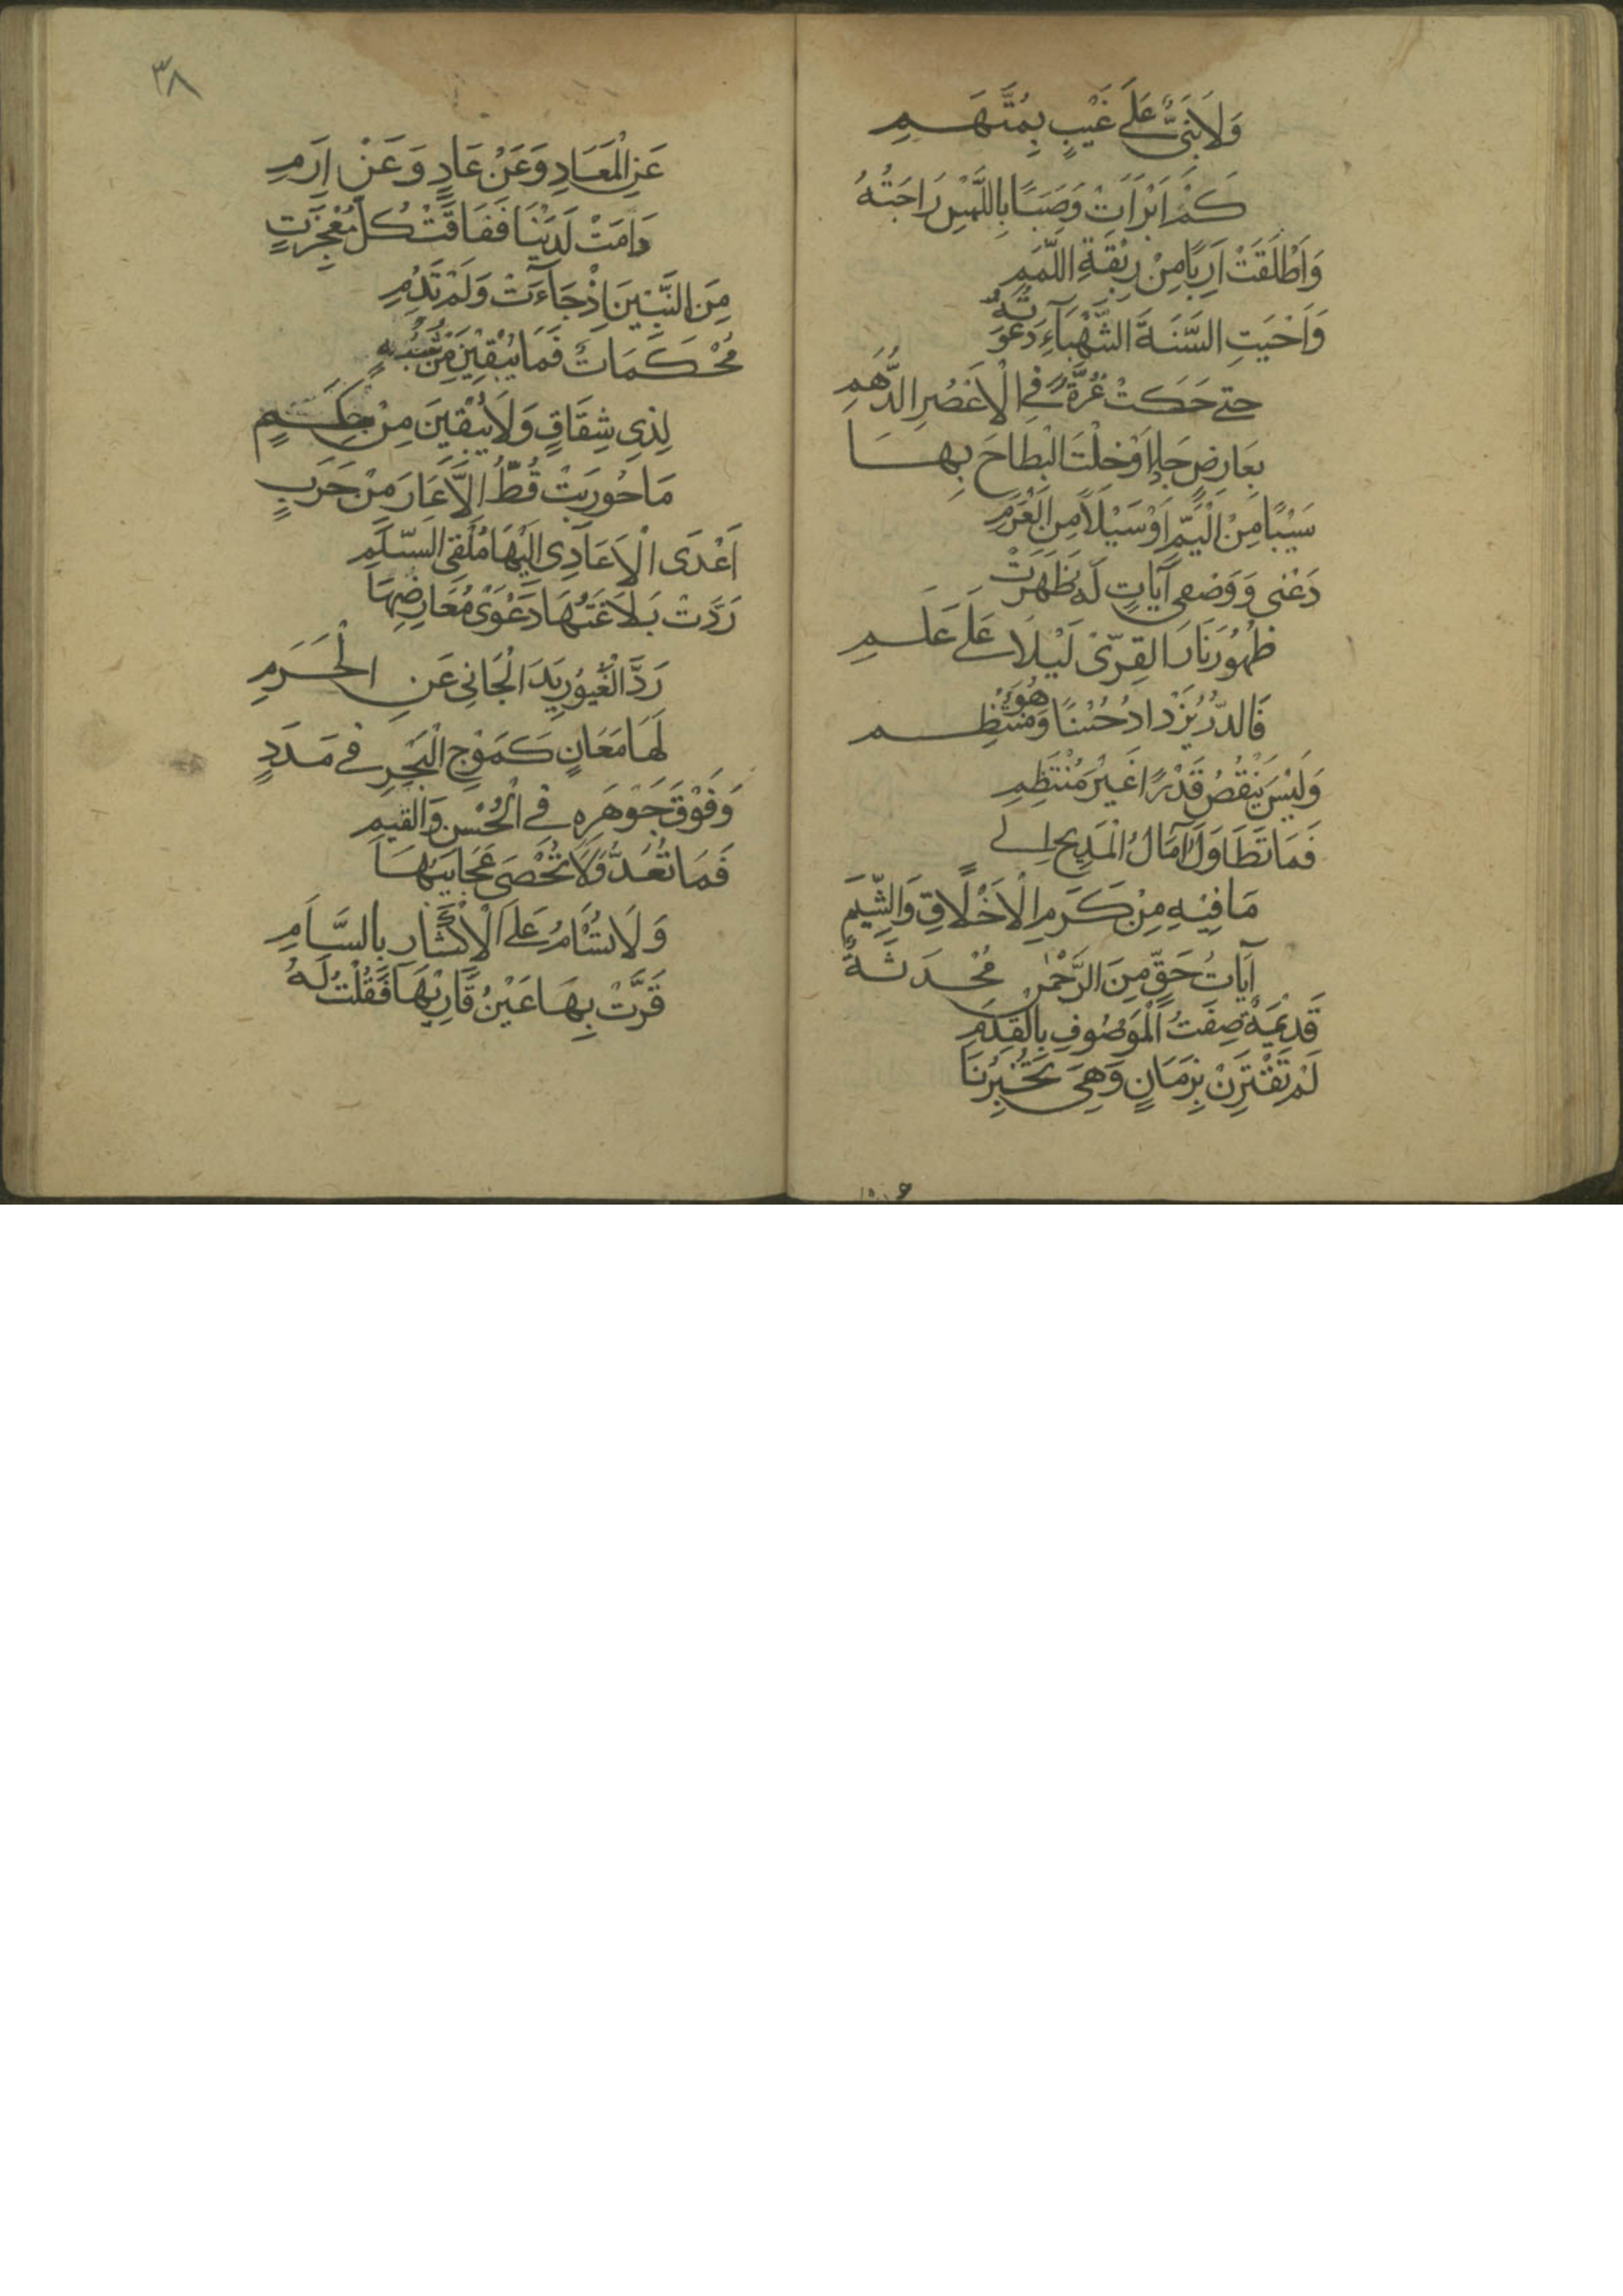 وَلَا نَبِيٌّ عَلَى غَيْبٍ بِمُتَّهَمِ
كَمْ اَبْرَأَتْ وَصِبًا بِاللَّمْسِ رَاحَتُهُ
وَاَطْلَقَتْ اَرِبًا مِنْ رِبْقَةِ اللَّمَمِ
وَاَحْيَتِ السَّنَةَ الشَّهْبَآءَ دَعْوَتُهُ
حتى حَكَتْ غُرَّةً فِي الْاَعْصُرِ الدُّهُمِ
بِعَارِضٍ جَادَ اَوْ خِلْتَ الْبِطَاحَ بِهَا
سَيْبًا مِنَ الْيَمِّ اَوْ سَيْلًا مِنَ الْعَرِمِ
دَعْنِى وَوَصْفِى آيَاتٍ لَهُ ظَهَرَتْ
ظُهُورَ نَارِ الْقِرَى لَيْلًا عَلَى عَلَمِ
فَالدُّرُّ يَزْدَادُ حُسْنًا وَهُوَ مُنْتَظِم
وَلَيْسَ يَنْقُصُ قَدْرًا غَيْرَ مُنْتَظِمِ
فَمَا تَطَاوَلَ آمَالُ الْمَدِيحِ اِلى
مَا فِيْهِ مِنْ كَرَمِ الْاَخْلَاقِ وَالشِّيَمِ
آيَاتُ حَقٍّ مِنَ الرَّحْمٰنِ مُحْدَثَةٌ
قَدِيْمَةٌ صِفَتُ الْمَوْصُوفِ بِالْقِدَمِ
لَمْ تَقْتَرِنْ بِزَمَانٍ وَهِىَ تُخْبِرُنَا
٣٨
عَنِ الْمَعَادِ وَعَنْ عَادٍ وَعَنْ اِرَمِ
دَامَتْ لَدَيْنَا فَفَاقَتْ كُلَّ مُعْجِزَتٍ
مِنَ النَّبِيّنَ اِذْ جَآءَتْ وَلَمْ تَدُمِ
مُحْكَمَاتٌ فَمَا يُبْقِيْنَ مِنْ شُبُهٍ
لِذِى شِقَاقٍ وَلَا يُبْقِيْنَ مِنْ حِكَمٍ
مَا حُورِبَتْ قُطُّ اِلَّا عَادَ مِنْ حَرَبٍ
اَعْدَى الْاَعَادِى اِلَيْهَا مُلْقِىَ السَّلَمِ
رَدَّتْ بَلَاغَتُهَا دَعْوَى مُعَارِضِهَا
رَدَّ الْغَيُورِ يَدَ الْجَانِى عَنِ الْحَرَمِ
لَهَا مَعَانٍ كَمَوْجِ الْبَحْرِ فِى مَدَدٍ
وَفَوْقَ جَوْهَرِهِ فِى الْحُسْنِ وَالْقِيَمِ
فَمَا تُعَدُّ وَلَا تُحْصَى عَجَائِبُهَا
وَلَا تُسَامُ عَلَى الْاِكْثَارِ بِالسَّأَمِ
قَرَّتْ بِهَا عَيْنُ قَارِيْهَا فَقُلْتُ لَهُ